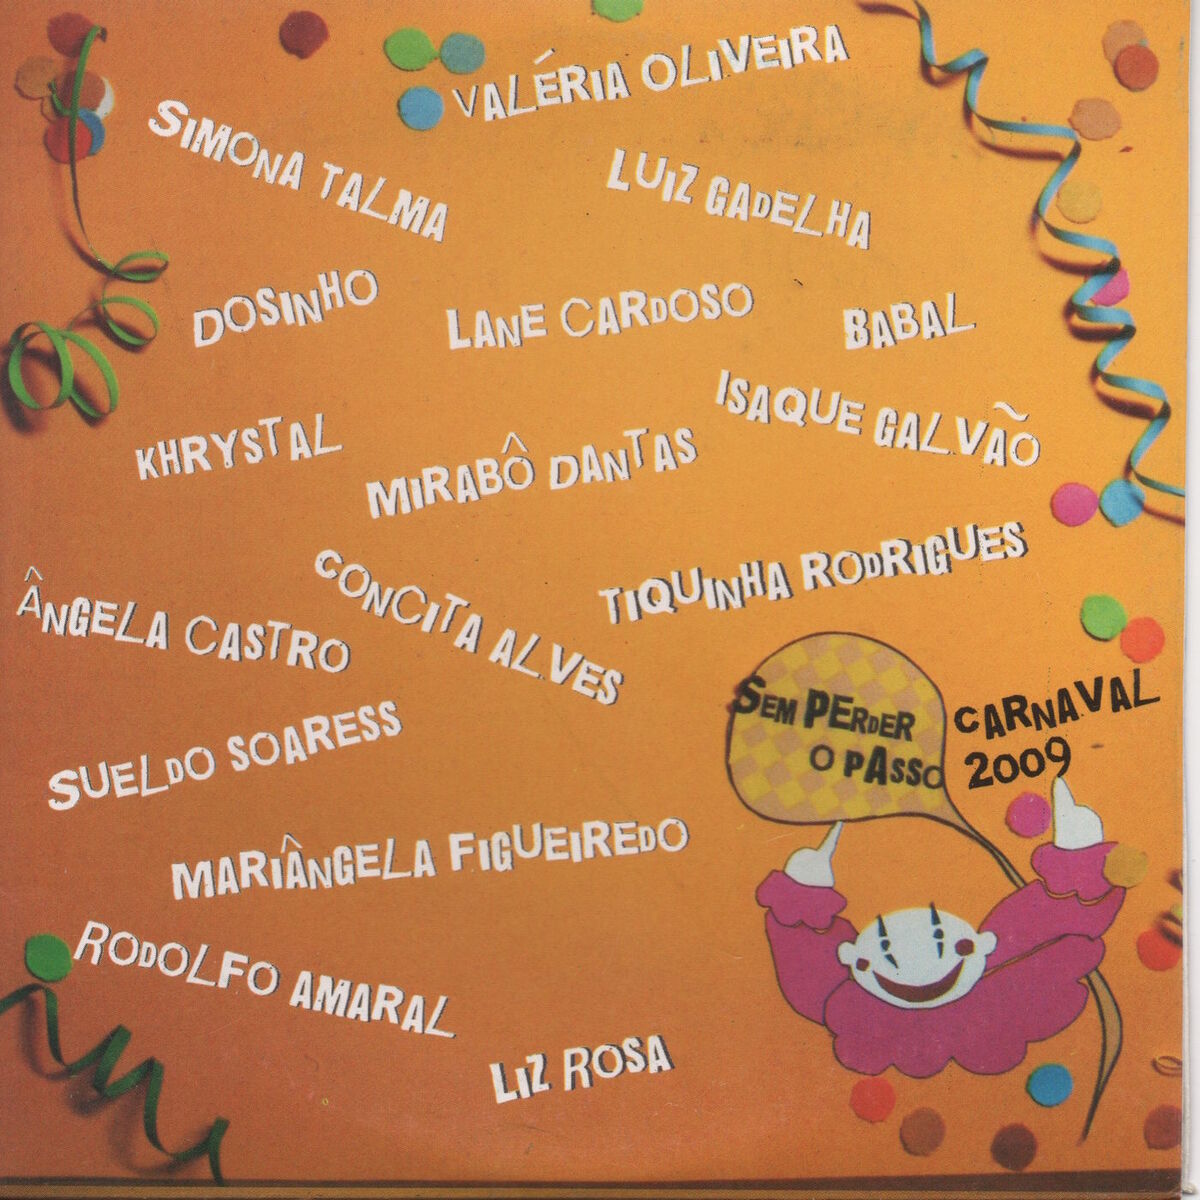 VALÉRIA OLIVEIRA
SIMONA TALMA
LUIZ GADELHA
DOSINHO
LANE CARDOSO
BABAL
ISAQUE GALVÃO
KHRYSTAL
MIRABÔ DANTAS
CONCITA ALVES
TIQUINHA RODRIGUES
ÂNGELA CASTRO
SUELDO SOARESS
SEM PERDER
O PASSO
CARNAVAL
2009
MARIÂNGELA FIGUEIREDO
RODOLFO AMARAL
LIZ ROSA